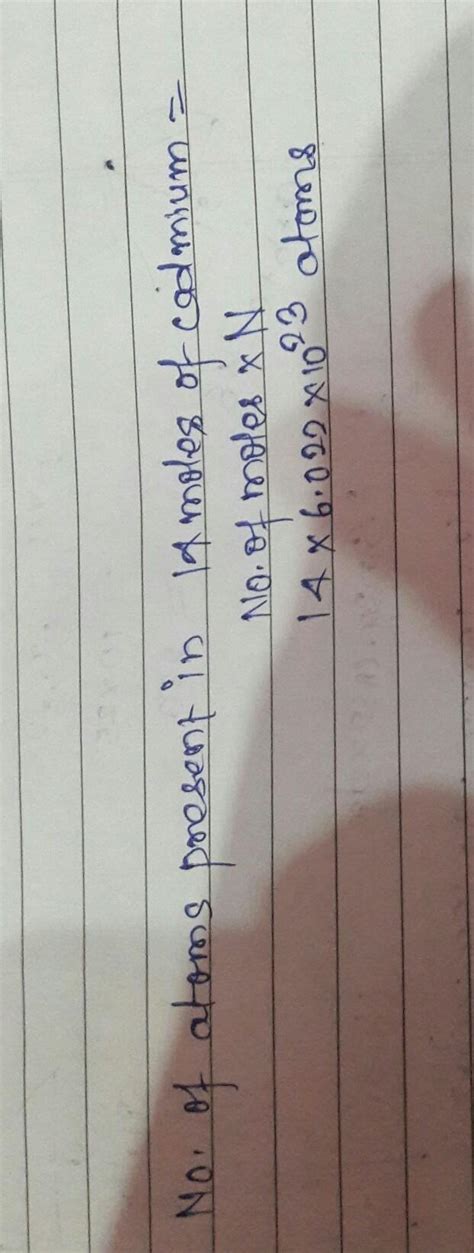 No. of atoms present in 14 moles of cadmium =
No. of moles x N
14 x 6.022 x 10²³ atoms